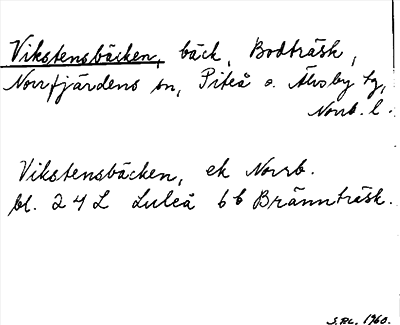 Vikstensbäcken, bäck, Bodträsk,
Norrfjärdens sn, Piteå o. Älvsby tg,
Norrb. l.
Vikstensbäcken, ek Norrb.
bl. 24L Luleå 6b Brännträsk.
S.RL. 1960.